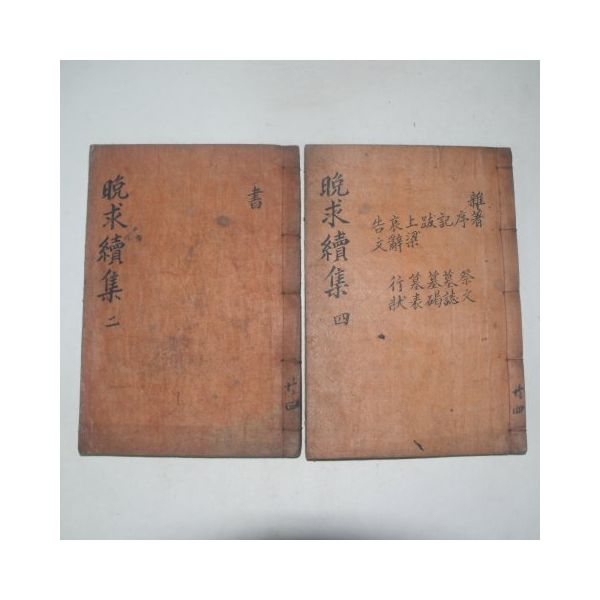 晩求續集 二
書
共四
晩求續集 四
雜著
序 祭文
記 墓誌
跋 墓碣
上梁 墓表
哀辭 行狀
告文
共四